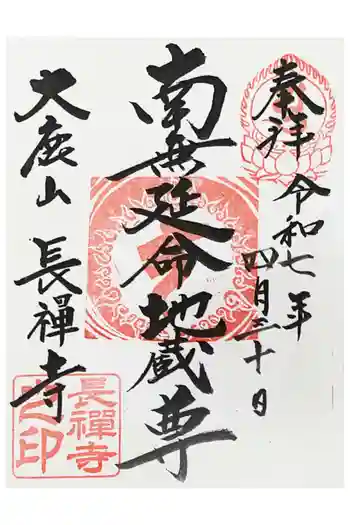 奉拝 令和七年
四月三十日
南無延命地蔵尊
大鹿山 長禪寺
長禪寺
之印